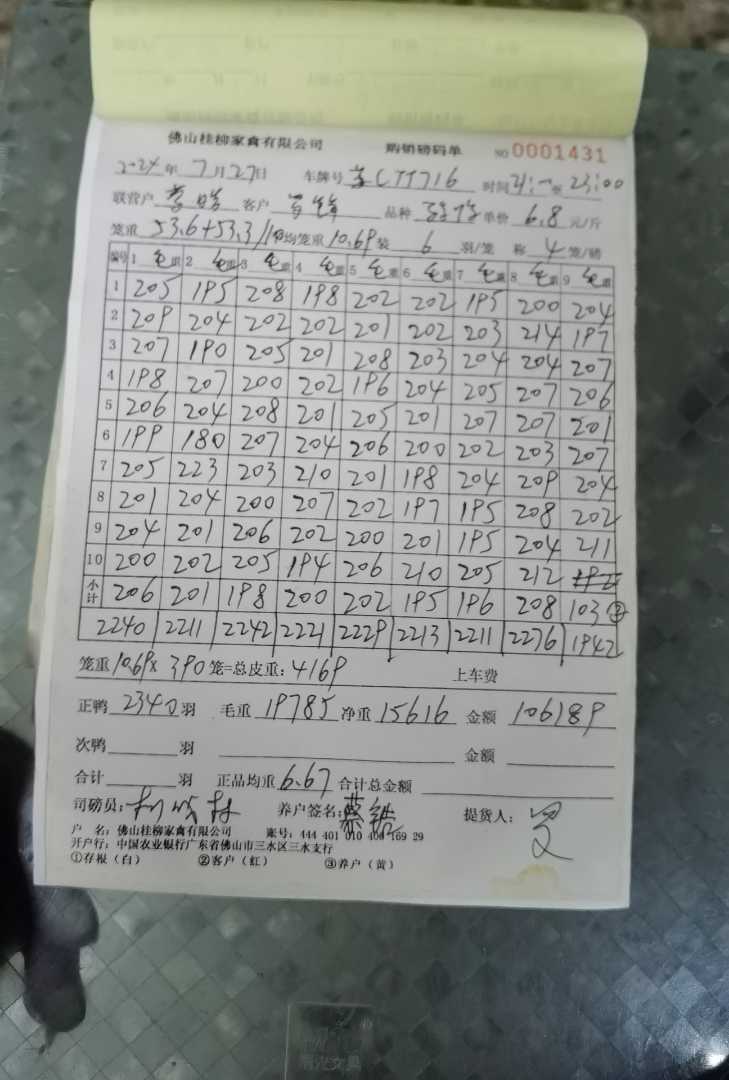 佛山桂柳家禽有限公司 购销磅码单 NO 0001431
2024年7月27日 车牌号 CTT716 时间21:00至23:00
联营户 客户 品种 单价 6.8 元/斤
笼重 53.6+53.3/10 均笼重10.69 装 6 羽/笼 称 4 笼/磅
编号 1 毛重 2 毛重 3 毛重 4 毛重 5 毛重 6 毛重 7 毛重 8 毛重 9 毛重
1 205 195 208 198 202 202 195 200 204
2 209 204 202 202 201 202 203 214 197
3 207 190 205 201 208 203 204 204 207
4 198 207 200 202 196 204 205 207 206
5 206 204 208 201 205 201 207 207 201
6 199 180 207 204 206 200 202 203 207
7 205 223 203 210 201 198 204 209 204
8 201 204 200 207 202 197 195 208 202
9 204 201 206 202 200 201 195 204 211
10 200 202 205 194 206 210 205 212
小计 206 201 198 200 202 195 196 208 103 ②
2240 2211 2242 2221 2229 2213 2211 2276 1942
笼重10.69× 390 笼=总皮重:4169 上车费
正鸭 2340 羽 毛重 19785 净重 15616 金额 106189
次鸭 羽 金额
合计 羽 正品均重 6.67 合计总金额
司磅员: 养户签名: 蔡锆 提货人:
户 名:佛山桂柳家禽有限公司 账号:444 401 010 400 169 29
开户行:中国农业银行广东省佛山市三水区三水支行
①存根(白) ②客户(红) ③养户(黄)